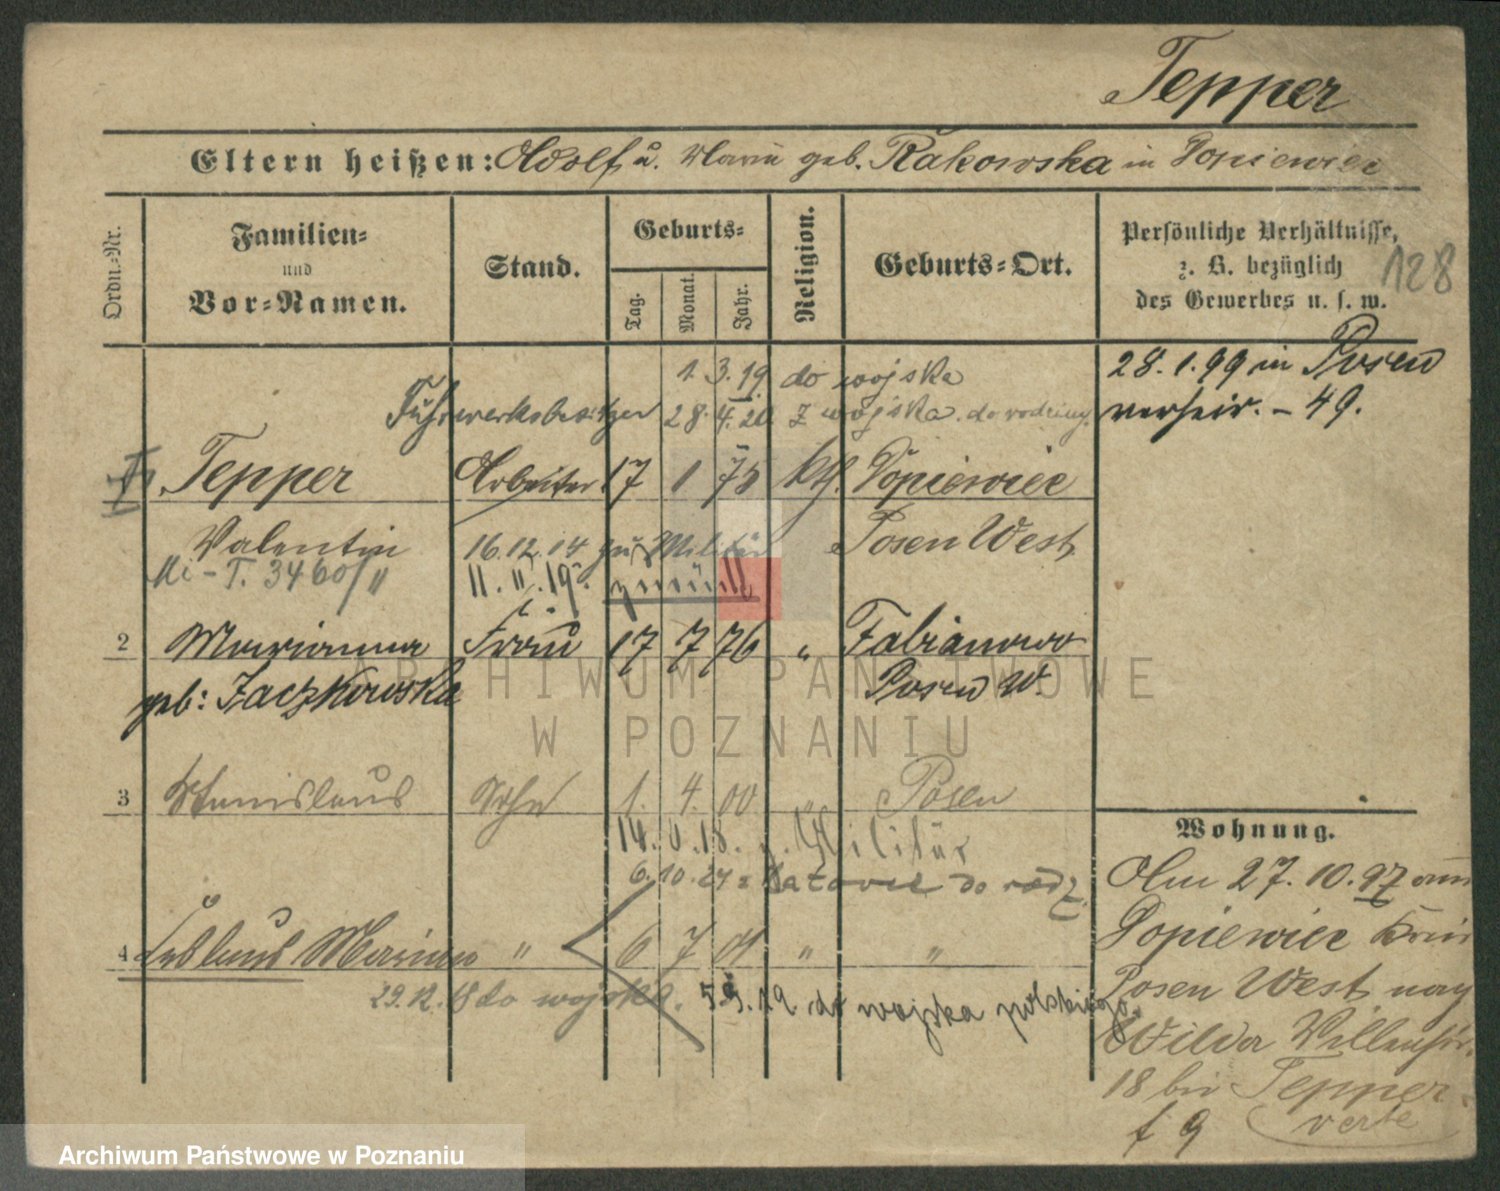 Tepper
Eltern heißen: Adolf u. Marie geb. Rakowska in Dopiewiec
Ordn.-Nr.
Familien-
und
Vor-Namen.
Stand.
Geburts-
Tag.
Monat.
Jahr.
Religion.
Geburts-Ort.
Persönliche Verhältnisse,
z. B. bezüglich
des Gewerbes u. s. w.
128
1. 3. 19 do wojska
28. 1. 99 in Posen
Fuhrwerksbesitzer 28. 4. 20 z wojska do rodziny.
verheir. – 49.
Tepper Arbeiter 17 1 75 kth. Dopiewiec
Valentin 16.12.14 zum Militär Posen West
T. 3460/
11. 11. 19
2 Marianna Frau 17 7 76 " Fabianowo
geb: Jaczkowska Posen W.
3 Stanislaus Sohn 1. 4. 00 " Posen
14. 6. 18. z. Militär
6. 10. 24 z Katowic do rodz.
4 Ladislaus Marian " 6 7 01 " "
29. 12. 18 do wojska. 5. 9. 19 do wojska polskiego.
Wohnung.
Am 27. 10. 97 aus
Dopiewiec Kreis
Posen West nach
Wilda Villenstr.
18 bei Tepper.
verte
ARCHIWUM PAŃSTWOWE
W POZNANIU
Archiwum Państwowe w Poznaniu